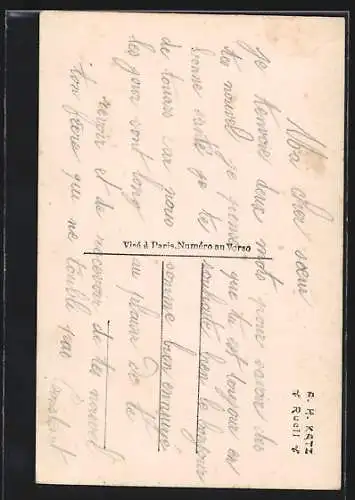 Mai cher sœur
Je t'envoie deux mots pour savoir des
tes nouvel je pense que tu est toujour en
bonne santé je te souhaite bien le bonjour
de touars car nous somme bien ennuiué
les jour sont long au plaisir de te
revoir et de recevoir de tes nouvel
ton frere qui ne t'oublie pas
Visé à Paris. Numéro au Verso
A. H. KATZ
Rueil